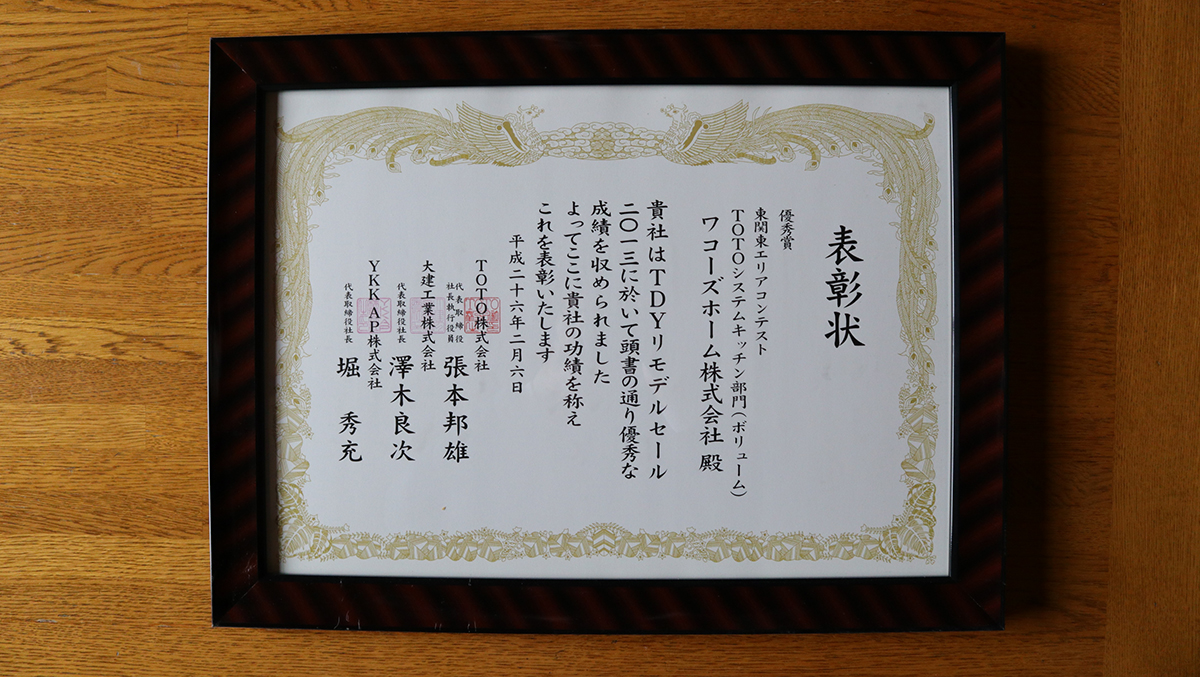 表彰状
優秀賞
東関東エリアコンテスト
TOTOシステムキッチン部門(ボリューム)
ワコーズホーム株式会社 殿
貴社はTDYリモデルセール
二〇一三に於いて頭書の通り優秀な
成績を収められました
よってここに貴社の功績を称え
これを表彰いたします
平成二十六年二月六日
TOTO株式会社
代表取締役
社長執行役員 張本邦雄
大建工業株式会社
代表取締役社長 澤木良次
YKK AP株式会社
代表取締役社長 堀 秀充